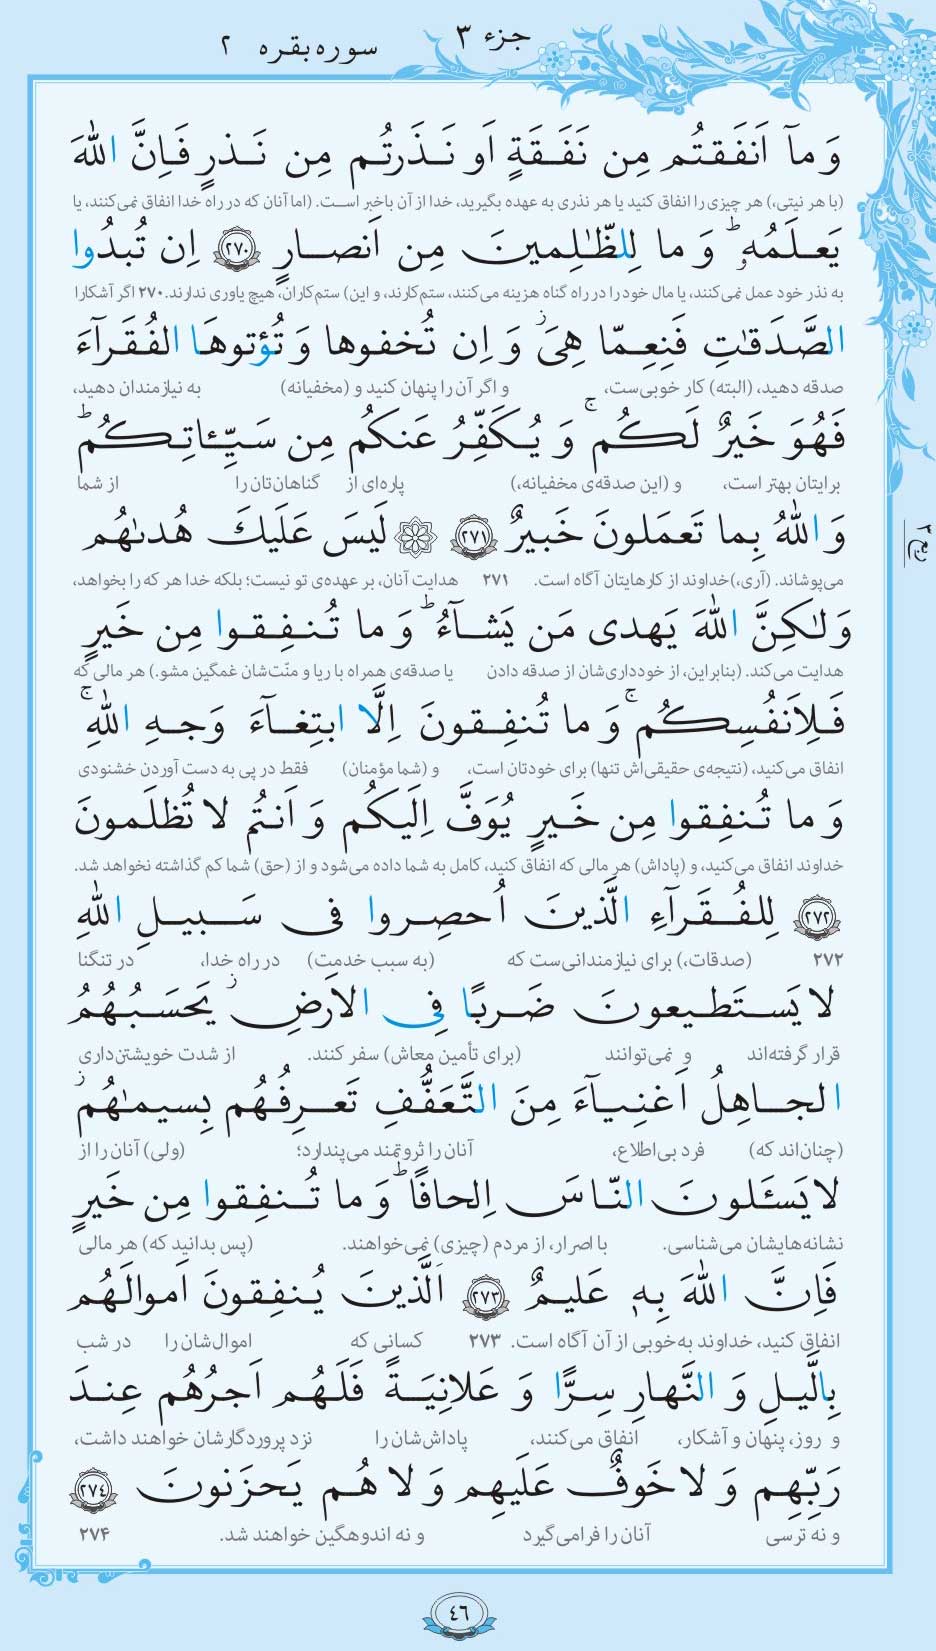 جزء ۳ سوره بقره ۲
وَ مآ اَنفَقتُم مِن نَفَقَةٍ اَو نَذَرتُم مِن نَذرٍ فَاِنَّ اللّٰهَ
(با هر نیتی،) هر چیزی را انفاق کنید یا هر نذری به عهده بگیرید، خدا از آن باخبر است. (اما آنان که در راه خدا انفاق نمی‌کنند، یا
يَعلَمُهٗ ؕ وَ ما لِلظّٰلِمينَ مِن اَنصارٍ ﴿٢٧٠﴾ اِن تُبدُوا
به نذر خود عمل نمی‌کنند، یا مال خود را در راه گناه هزینه می‌کنند، ستم‌کارند، و این) ستم‌کاران، هیچ یاوری ندارند. ۲۷۰ اگر آشکارا
الصَّدَقٰتِ فَنِعِمّا هِىَ ؗ وَ اِن تُخفوها وَ تُؤتوهَا الفُقَرآءَ
صدقه دهید، (البته) کار خوبی‌ست، و اگر آن را پنهان کنید و (مخفیانه) به نیازمندان دهید،
فَهُوَ خَيرٌ لَكُم ۚ وَ يُكَفِّرُ عَنكُم مِن سَيِّـٔاتِكُم ؕ
برایتان بهتر است، و (این صدقه‌ی مخفیانه،) پاره‌ای از گناهان‌تان را از شما
وَ اللّٰهُ بِما تَعمَلونَ خَبيرٌ ﴿٢٧١﴾ ۞ لَيسَ عَلَيكَ هُدىٰهُم
می‌پوشاند. (آری،) خداوند از کارهایتان آگاه است. ۲۷۱ هدایت آنان، بر عهده‌ی تو نیست؛ بلکه خدا هر که را بخواهد،
وَلٰكِنَّ اللّٰهَ يَهدى مَن يَشآءُ ؕ وَ ما تُنفِقوا مِن خَيرٍ
هدایت می‌کند. (بنابراین، از خودداری‌شان از صدقه دادن یا صدقه‌ی همراه با ریا و منّت‌شان غمگین مشو.) هر مالی که
فَلِاَنفُسِكُم ۚ وَ ما تُنفِقونَ اِلَّا ابتِغآءَ وَجهِ اللّٰهِ ۚ
انفاق می‌کنید، (نتیجه‌ی حقیقی‌اش تنها) برای خودتان است، و (شما مؤمنان) فقط در پی به دست آوردن خشنودی
وَ ما تُنفِقوا مِن خَيرٍ يُوَفَّ اِلَيكُم وَ اَنتُم لا تُظلَمونَ
خداوند انفاق می‌کنید، و (پاداش) هر مالی که انفاق کنید، کامل به شما داده می‌شود و از (حق) شما کم گذاشته نخواهد شد.
﴿٢٧٢﴾ لِلفُقَرآءِ الَّذينَ اُحصِروا فى سَبيلِ اللّٰهِ
۲۷۲ (صدقات،) برای نیازمندانی‌ست که (به سبب خدمت) در راه خدا، در تنگنا
لا يَستَطيعونَ ضَربًا فِى الاَرضِ ؗ يَحسَبُهُمُ
قرار گرفته‌اند و نمی‌توانند (برای تأمین معاش) سفر کنند. از شدت خویشتن‌داری
الجاهِلُ اَغنِيآءَ مِنَ التَّعَفُّفِ تَعرِفُهُم بِسيمٰهُم ؗ
(چنان‌اند که) فرد بی‌اطلاع، آنان را ثروتمند می‌پندارد؛ (ولی) آنان را از
لا يَسـَٔلونَ النّاسَ اِلحافًا ؕ وَ ما تُنفِقوا مِن خَيرٍ
نشانه‌هایشان می‌شناسی. با اصرار، از مردم (چیزی) نمی‌خواهند. (پس بدانید که) هر مالی
فَاِنَّ اللّٰهَ بِهٖ عَليمٌ ﴿٢٧٣﴾ اَلَّذينَ يُنفِقونَ اَموالَهُم
انفاق کنید، خداوند به‌خوبی از آن آگاه است. ۲۷۳ کسانی که اموال‌شان را در شب
بِالَّيلِ وَ النَّهارِ سِرًّا وَ عَلانِيَةً فَلَهُم اَجرُهُم عِندَ
و روز، پنهان و آشکار، انفاق می‌کنند، پاداش‌شان را نزد پروردگارشان خواهند داشت،
رَبِّهِم وَ لا خَوفٌ عَلَيهِم وَ لا هُم يَحزَنونَ ﴿٢٧٤﴾
و نه ترسی آنان را فرامی‌گیرد و نه اندوهگین خواهند شد. ۲۷۴
٤٦